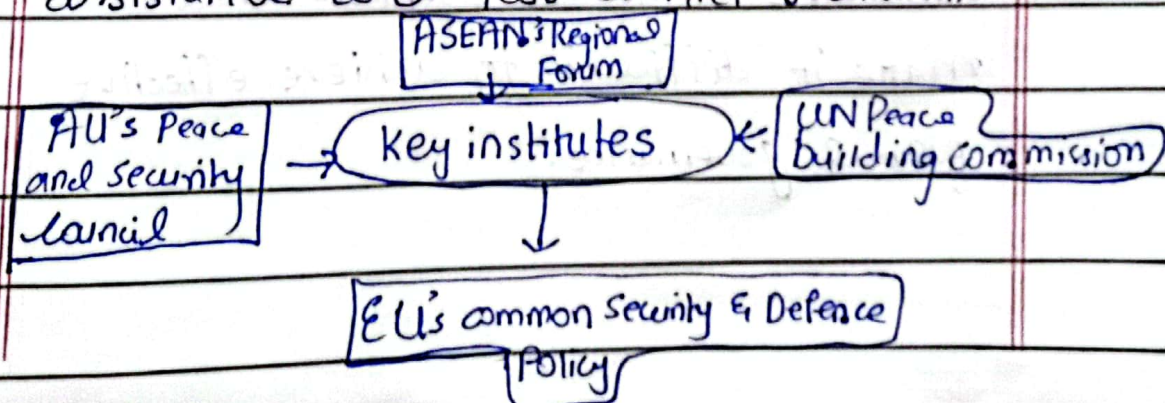 ASEAN's Regional
Forum
AU's Peace
and security
Council
Key institutes
UN Peace
building commission
EU's common Security & Defence
Policy